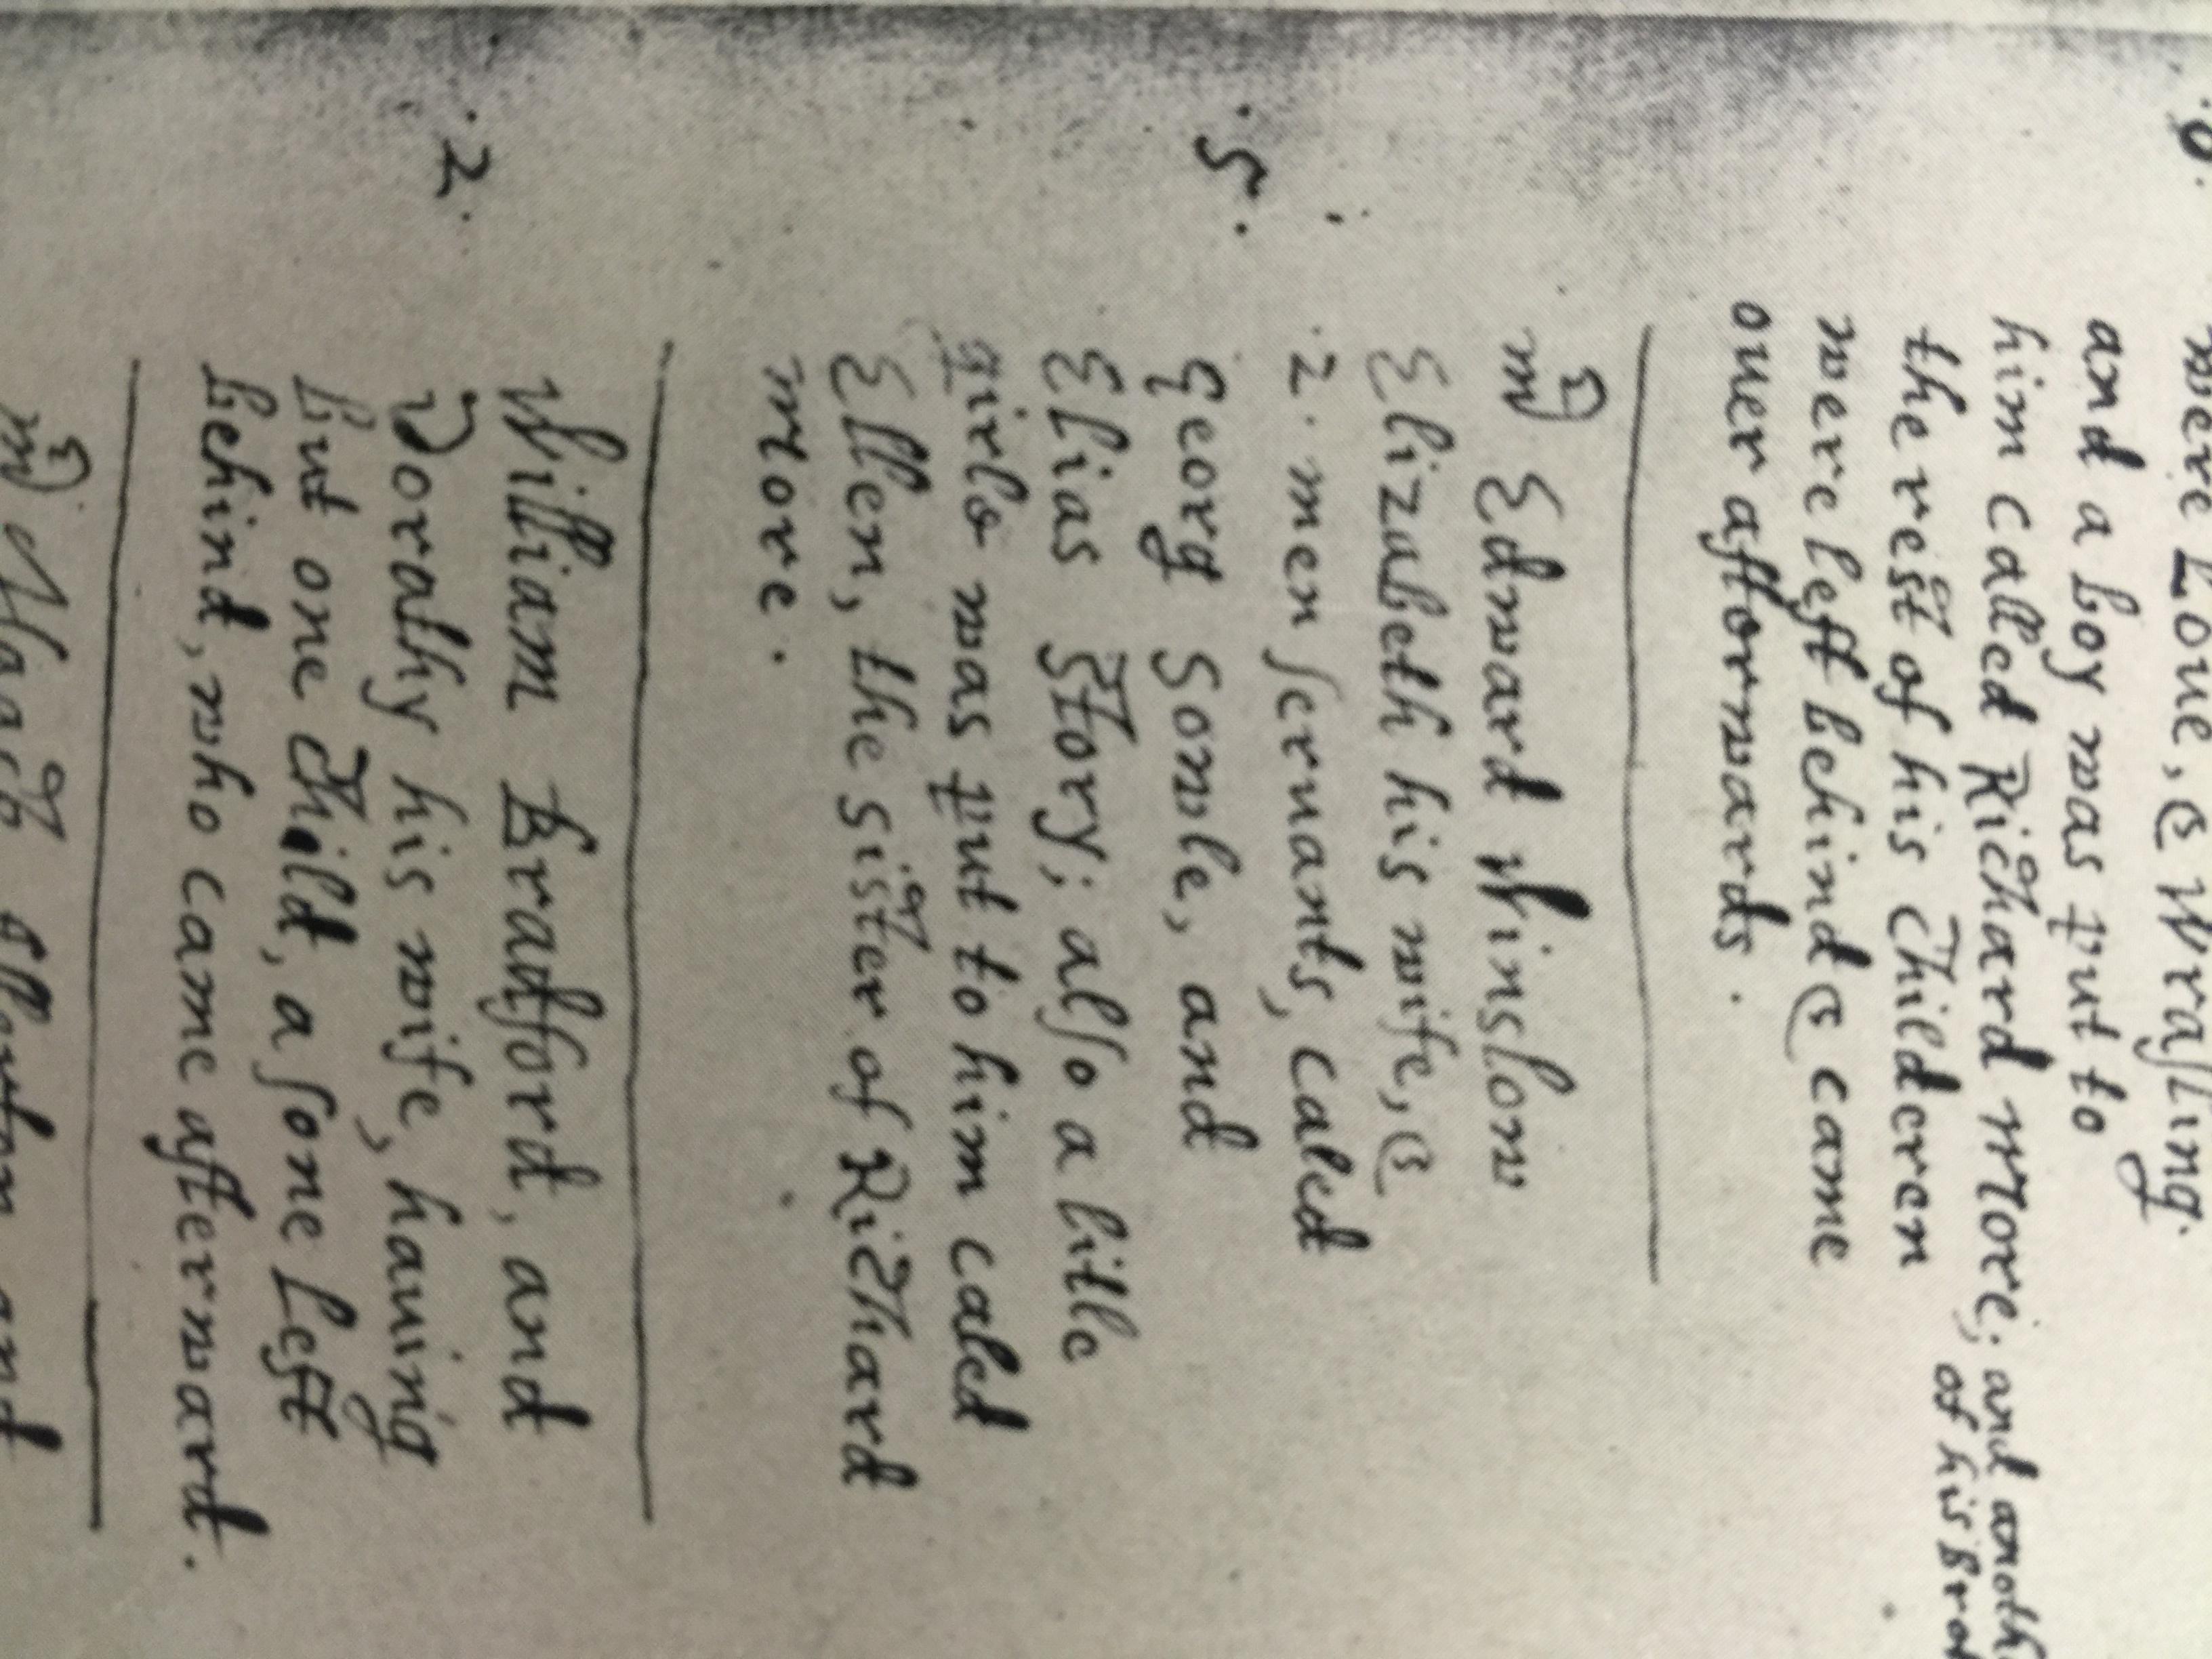 were Loue, & Wrasling.
and a boy was put to
him called Richard More; and anoth
of his bro
the rest of his Childeren
were left behind & came
ouer afterwards.
mr Edward Winslow
Elizabeth his wife, &
.2. men seruants, caled
.5.
Georg Sowle, and
Elias Story; also a litle
girle was put to him caled
Ellen, the sister of Richard
More.
William Bradford, and
.2.
Dorathy his wife, having
but one Child, a sone left
behind, who came afterward.
mr and